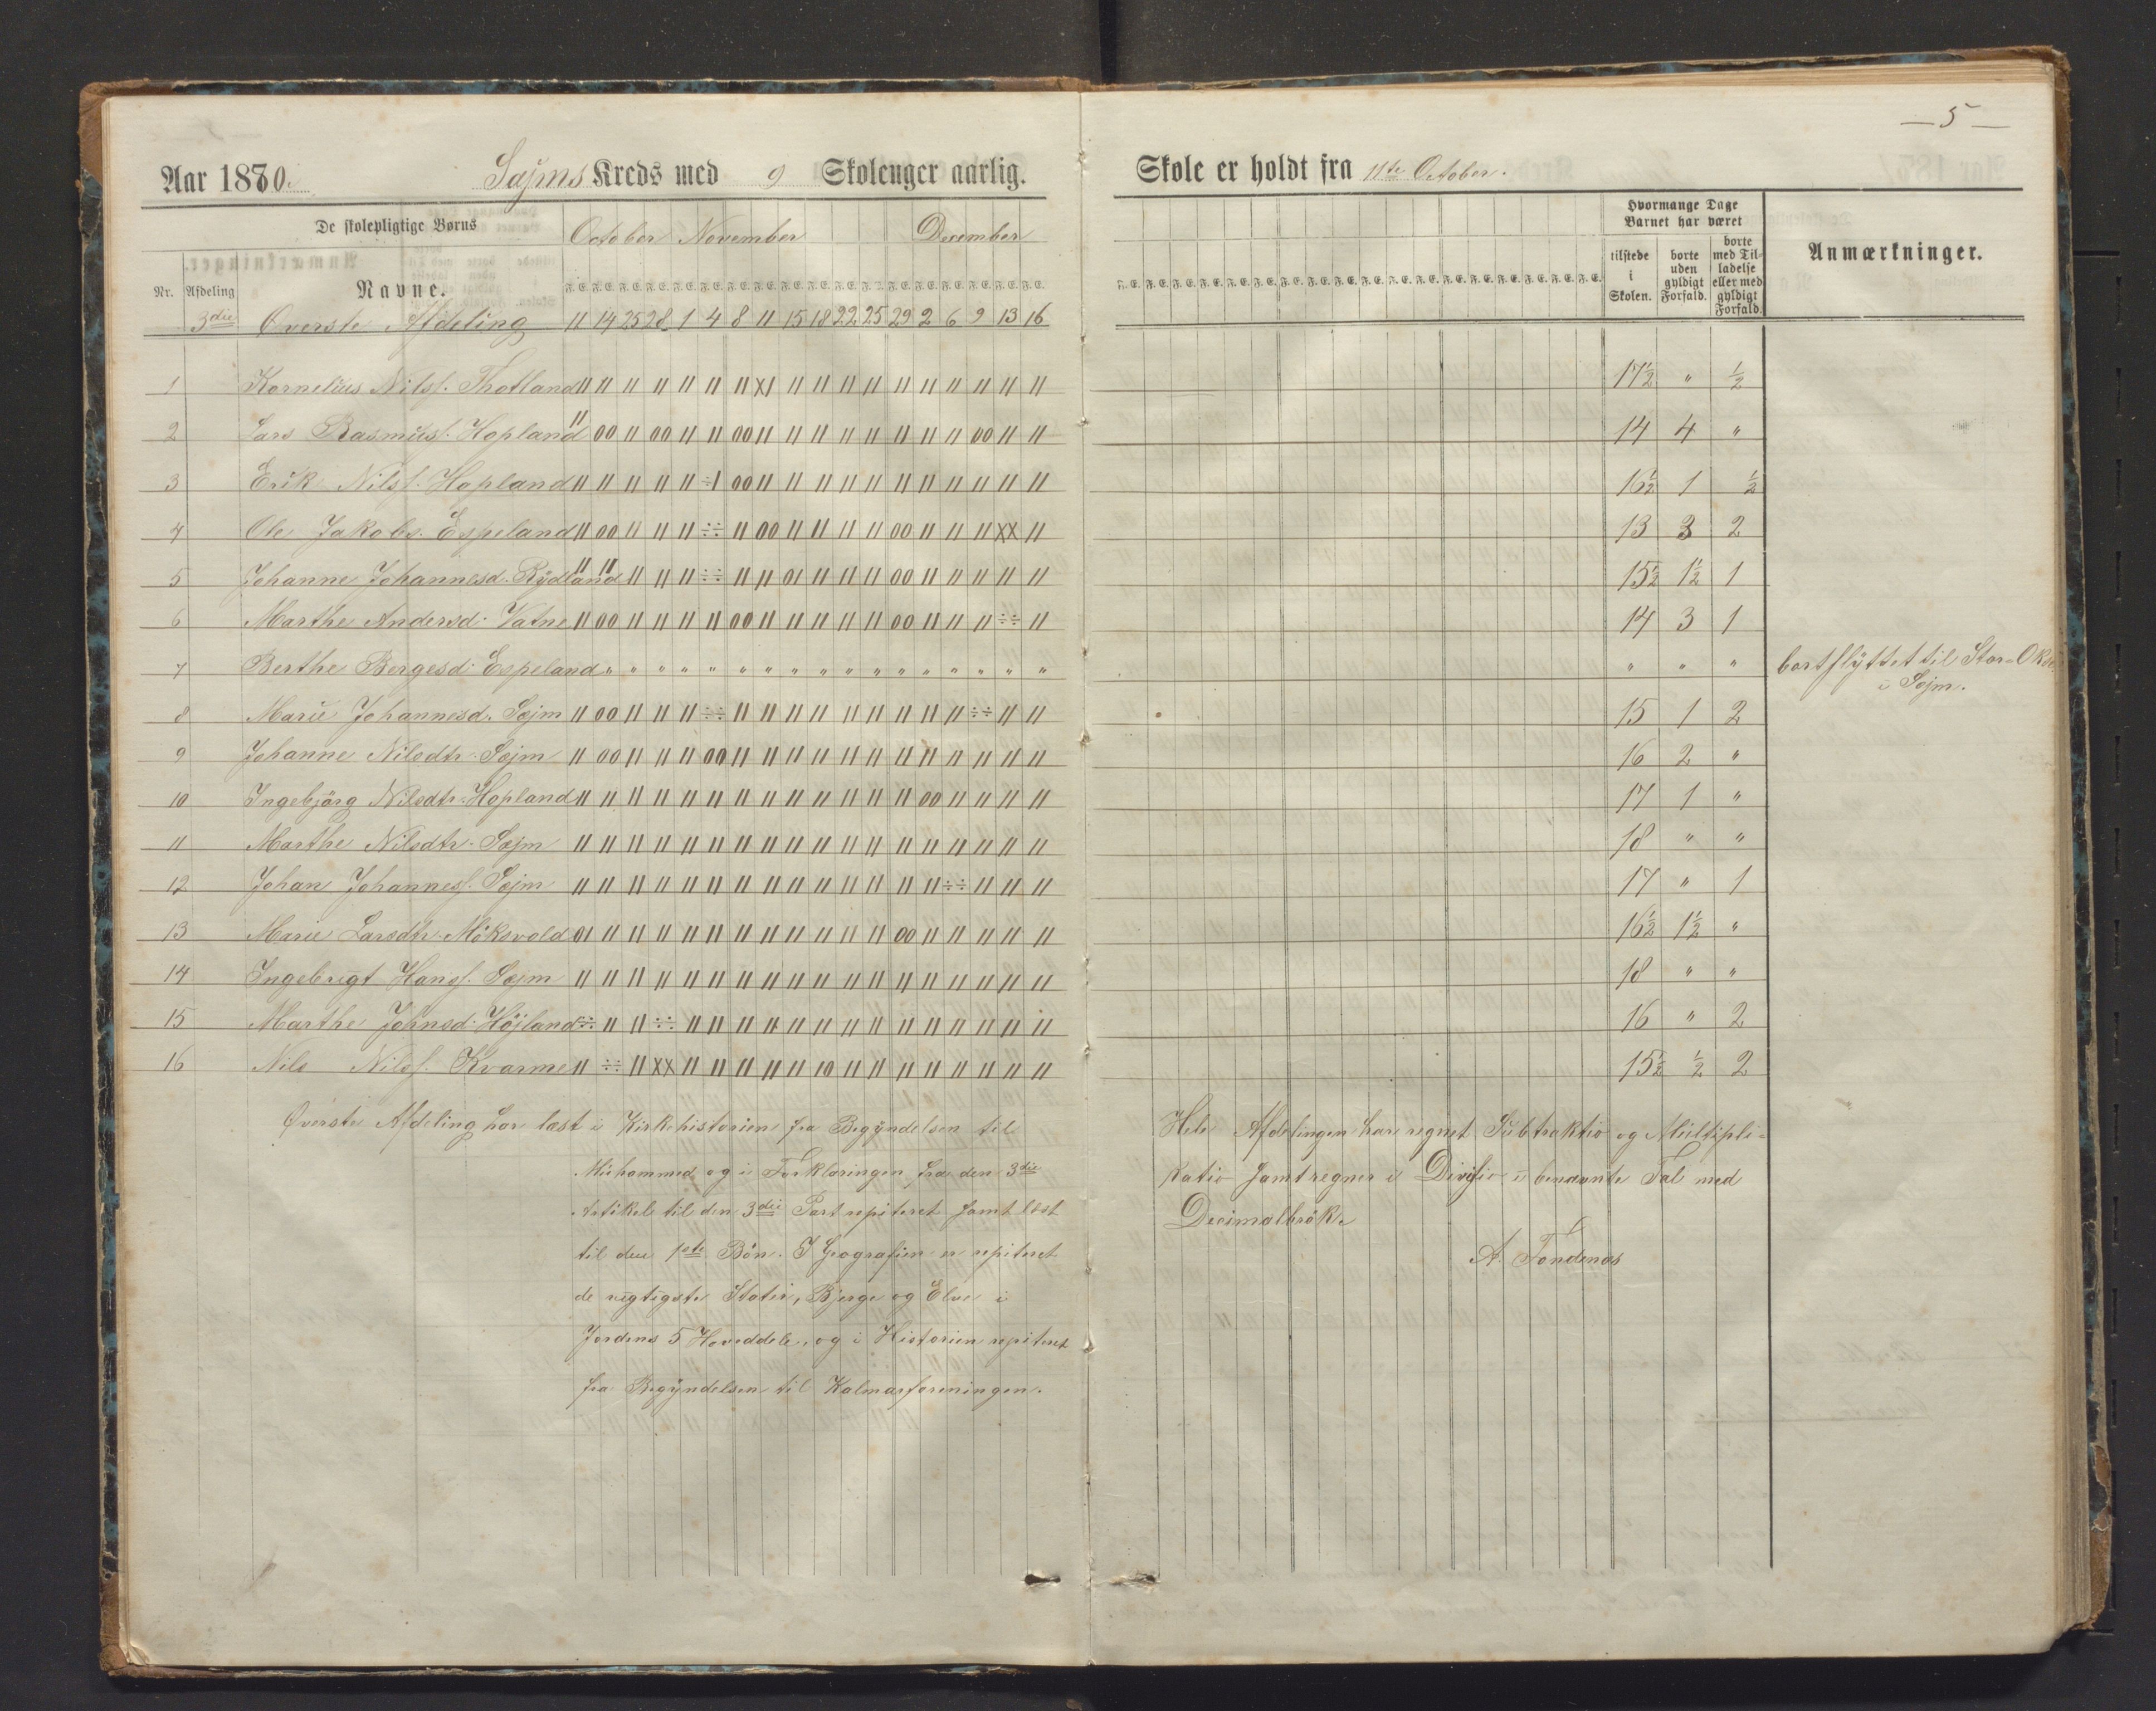 — 5 —
Aar 1870. Søjms Kreds med 9 Skolenger aarlig.
Skole er holdt fra 11te October.
De skolepligtige Børns
October November December
Hvormange Dage Barnet har været
Nr. Afdeling Navne.
F. E. F. E. F. E. F. E. F. E. F. E. F. E. F. E. F. E. F. E. F. E. F. E. F. E. F. E. F. E. F. E. F. E. F. E.
tilstede i Skolen. borte uden gyldigt Forfald. borte med Tilladelse eller med gyldigt Forfald. Anmærkninger.
3die Øverste Afdeling 11 14 25 28 1 4 8 11 15 18 22 25 29 2 6 9 13 16
1 Kornelius Nilsf. Thotland 11 11 11 11 11 11 11 X1 11 11 11 11 11 11 11 11 11 11 17½ " ½
2 Lars Rasmusf. Hopland 11 00 11 00 11 11 00 11 11 11 11 11 11 11 11 00 11 11 14 4 "
3 Erik Nilsf. Hopland 11 11 11 11 11 ÷1 00 11 11 11 11 11 11 11 11 11 11 11 16½ 1 ½
4 Ole Jakobs. Espeland 11 00 11 11 11 ÷÷ 11 00 11 11 11 11 00 11 11 11 XX 11 13 3 2
5 Johanne Johannesd. Rydland 11 11 11 11 11 ÷÷ 11 11 01 11 11 11 00 11 11 11 11 11 15½ 1½ 1
6 Marthe Andersd. Vatne 11 00 11 11 11 11 00 11 11 11 11 11 00 11 11 11 ÷÷ 11 14 3 1
7 Berthe Børgesd. Espeland " " " " " " " " " " " " " " " " " " " " " bortflyttet til Stor-Okse
i Søjm.
8 Marie Johannesd. Søjm 11 00 11 11 11 ÷÷ 11 11 11 11 11 11 11 11 11 ÷÷ 11 11 15 1 2
9 Johanne Nilsdtr. Søjm 11 00 11 11 11 00 11 11 11 11 11 11 11 11 11 11 11 11 16 2 "
10 Ingebjørg Nilsdtr. Hopland 11 11 11 11 11 11 11 11 11 11 11 11 11 00 11 11 11 11 17 1 "
11 Marthe Nilsdtr. Søjm 11 11 11 11 11 11 11 11 11 11 11 11 11 11 11 11 11 11 18 " "
12 Johan Johannesf. Søjm 11 11 11 11 11 11 11 11 11 11 11 11 11 11 ÷÷ 11 11 11 17 " 1
13 Marie Larsdtr. Møksvold 01 11 11 11 11 11 11 11 11 11 11 11 00 11 11 11 11 11 16½ 1½ "
14 Ingebrigt Hansf. Søjm 11 11 11 11 11 11 11 11 11 11 11 11 11 11 11 11 11 11 18 " "
15 Marthe Johnsd. Højland ÷÷ 11 11 ÷÷ 11 11 11 11 11 11 11 11 11 11 11 11 11 11 16 " 2
16 Nils Nilsf. Kvarme 11 ÷÷ 11 XX 11 11 11 11 11 10 11 11 11 11 11 11 11 11 15½ ½ 2
Øverste Afdeling har læst i Kirkehistorien fra Begyndelsen til
Muhammed og i Forklaringen fra den 3die
Artikel til den 3die Part repiteret samt læst
til den 1ste Bøn. I Geografien er repiteret
de vigtigste Stater, Bjerge og Elve i
Jordens 5 Hoveddele, og i Historien repiteret
fra Begyndelsen til Kalmarforeningen.
Hele Afdelingen har regnet Subtraktio og Multipli-
katio samt regner i Divisio i benævnte Tal med
Decimalbrøk.
A. Tondenæs